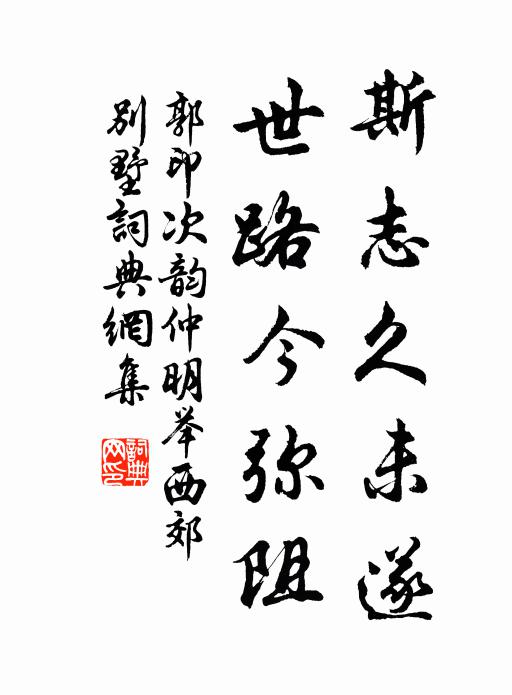 斯志久未遂
世路今弥阻
郭印次韵仲明举西郊
别墅詞典網集
詞典网印